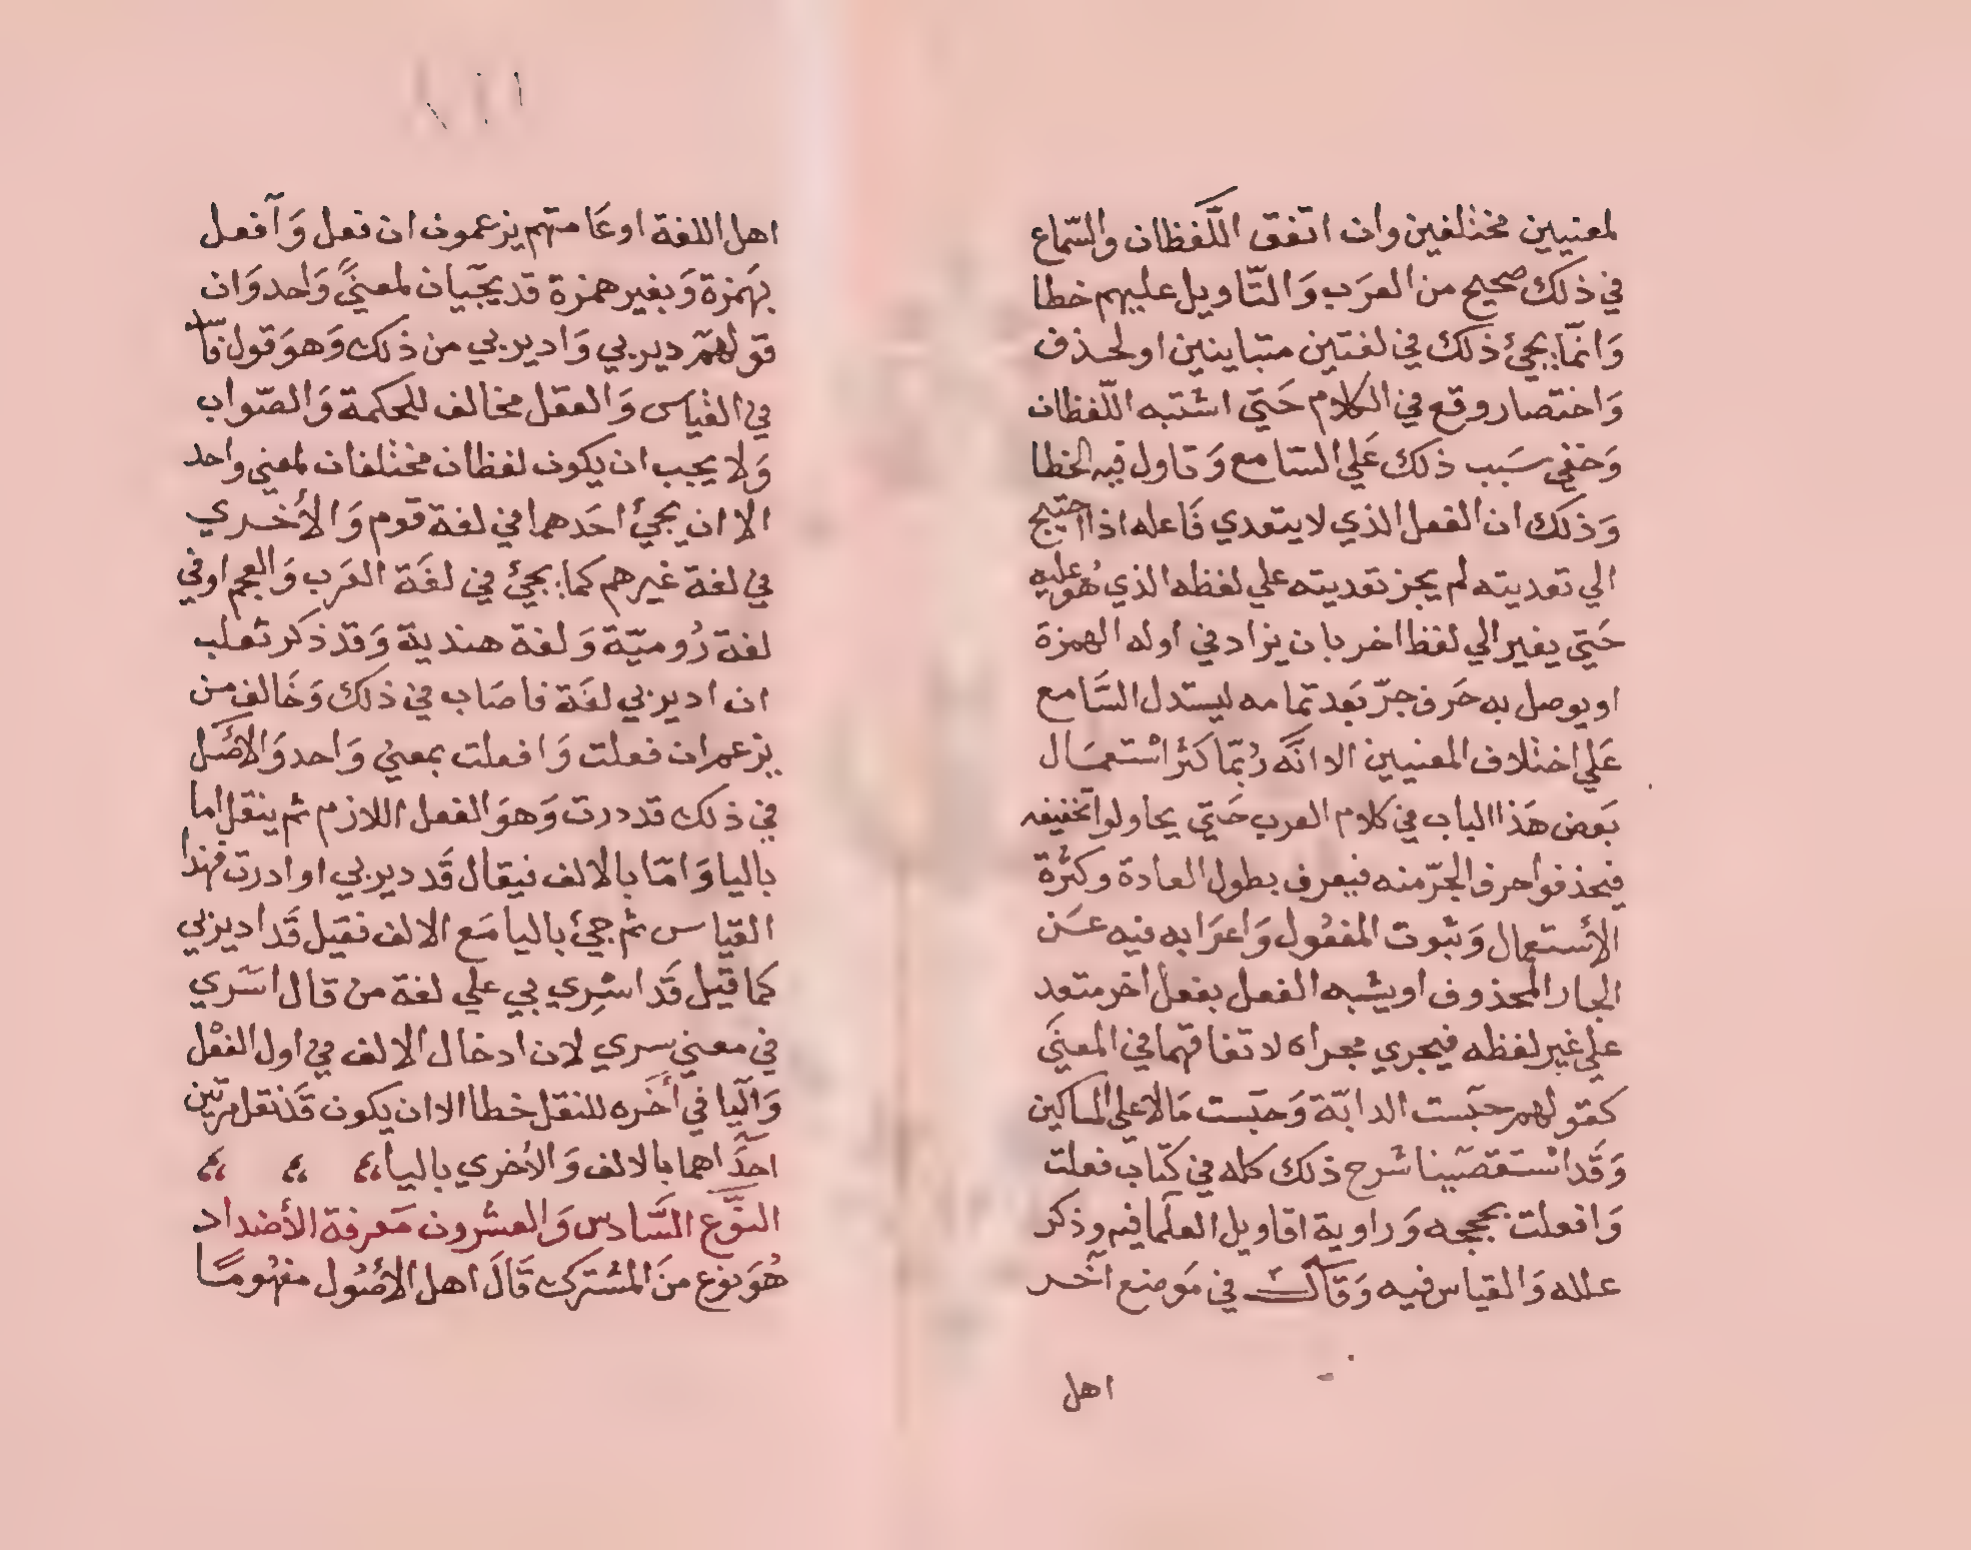 لمعنيين مختلفين وان اتفق اللّفظان والسّماع
في ذلك صحيح من العرَب وَالتّاويل عليهم خطا
وَانمّا يجئ ذلك في لغتين متباينين او لحذف
وَاختصار وقع في الكلام حَتي اشتبه اللّفظان
وَخفي سَبب ذلك عَلي السّامع وَتاول فيه الخطا
وَذلك ان الفعل الذي لا يتعدي فَاعله اذا احتيج
الي تعديته لم يجز تعديته علي لفظه الذي هُو عليه
حَتي يغير الي لفظ اخر بان يزاد في اوله الهمزة
او يوصل به حَرف جرّ بَعد تمامه ليستدل السَّامع
عَلي اختلاف المعنيين الا انَّه رُبّما كثر اسْتعمَال
بَعض هَذا الباب في كلام العرب حَتي يحاولوا تخفيفه
فيحذفوا حرف الجرّ منه فيعرف بطول العادة وكثْرة
الأسْتعمال وَثبوت المفعُول وَاعرَابه فيه عَن
الجار المحذوف او يشبه الفعل بفعل اخر متعد
علي غير لفظه فيجري مجراه لاتفاقهما في المعنَي
كقولهم حبَست الدابّة وَحبَست مَالا علي المساكين
وَقَد اسْتقصَينا شرح ذلك كله في كتَاب فعلت
وَافعلت بحججه وَراوية اقاويل العلَما فيه وذكر
علله وَالقياس فيه وَقَالَ في مَوضع آخَر
اهل
اهل اللغة او عَامتهم يزعمون ان فعل وَآفعل
بهَمزة وَبغير همزة قد يجَيان لمعنيً وَاحد وَان
قولهمَ دير بي وَادير بي من ذلك وَهوَ قول فاَسد
في القيَاس وَالعقل مخالف للحكمة وَالصّواب
وَلا يجب ان يكون لفظان مختلفان لمعني واحد
الا ان يجئ احَدهما في لغة قوم وَالأُخري
في لغة غيرهم كما يجئ في لغَة العرَب وَالعجم او في
لغة رُوميّة وَلغة هندية وَقد ذكر ثعلب
ان ادير بي لغَة فاصَاب في ذلك وَخَالف من
يزعم ان فعلت وَافعلت بمعني وَاحد وَالاصْل
في ذلك قد درت وَهوَ الفعل اللازم ثم ينقل اما
باليا وَامّا بالالف فيقال قَد دير بي او ادرت فهذا
القياس ثم جئ باليا مَع الالف فقيل قَد ادير بي
كما قيل قَد اسْرِي بي علي لغة من قال اسَري
في معني سري لان ادخال الالف في اول الفعْل
وَاليا في أخَره للنقل خطا الا ان يكون قَد نقل مرتَين
احدَاهما بالالف وَالأخري باليا
النوَّع السَّادس وَالعشرون مَعرفة الأضداد
هُوَ نوع منَ المشْترك قَالَ اهل الاصُول مفهُومَا